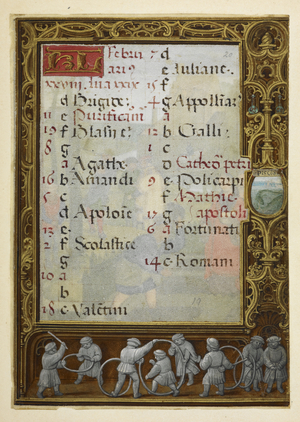 KL Februarius
xxviii. lua xxix
d Brigide.
11 e Purificati
19 f Blasii e.
8 g
a Agathe.
16 b Amandi
5 c
d Apolonie
13 e
2 f Scolastice
g
10 a
b
18 c Valetini
7 d
e Iuliane.
15 f
4 g
a
12 b Galli.
1 c
d Cathedra petri
9 e Policarpi
f Mathie
17 g apostoli
6 a Fortunati
b
14 c Romani